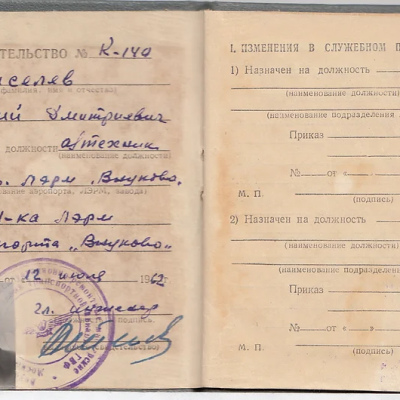 ТЕЛЬСТВО № К-140
иселев
фамилия, имя и отчество)
ий Дмитриевич
должности а/техник
(наименование должности)
Лэрм Внуково.
вание аэропорта, ЛЭРМ, завода)
1-ка Лэрм
порта „Внуково"
12 июля 1962
гл. инженер
I. ИЗМЕНЕНИЯ В СЛУЖЕБНОМ П
1) Назначен на должность
(наименование должности)
(наименование подразделения
Приказ
№ от «
М. П.
(подпись)
2) Назначен на должность
(наименование должности)
(наименование подразделен
Приказ
№ от « »
М. П.
(подпись)